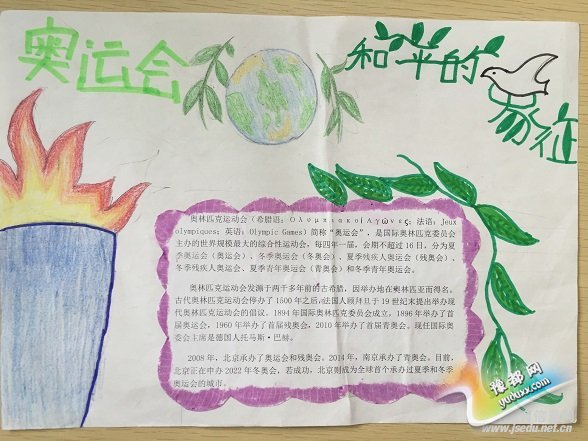 奥运会
和平的
象征
奥林匹克运动会（希腊语：Ολυμπιακοί Αγώνες；法语：Jeux
olympiques；英语：Olympic Games）简称“奥运会”，是国际奥林匹克委员会
主办的世界规模最大的综合性运动会，每四年一届，会期不超过16日，分为夏
季奥运会（奥运会）、冬季奥运会（冬奥会）、夏季残疾人奥运会（残奥会）、
冬季残疾人奥运会、夏季青年奥运会（青奥会）和冬季青年奥运会。
奥林匹克运动会发源于两千多年前的古希腊，因举办地在奥林匹亚而得名。
古代奥林匹克运动会停办了1500年之后，法国人顾拜旦于19世纪末提出举办现
代奥林匹克运动会的倡议。1894年国际奥林匹克委员会成立，1896年举办了首
届奥运会，1960年举办了首届残奥会，2010年举办了首届青奥会。现任国际奥
委会主席是德国人托马斯·巴赫。
2008年，北京承办了奥运会和残奥会。2014年，南京承办了青奥会。目前，
北京正在申办2022年冬奥会，若成功，北京则成为全球首个承办过夏季和冬季
奥运会的城市。
豫都网
yuduxx.com
www.jsedu.net.cn